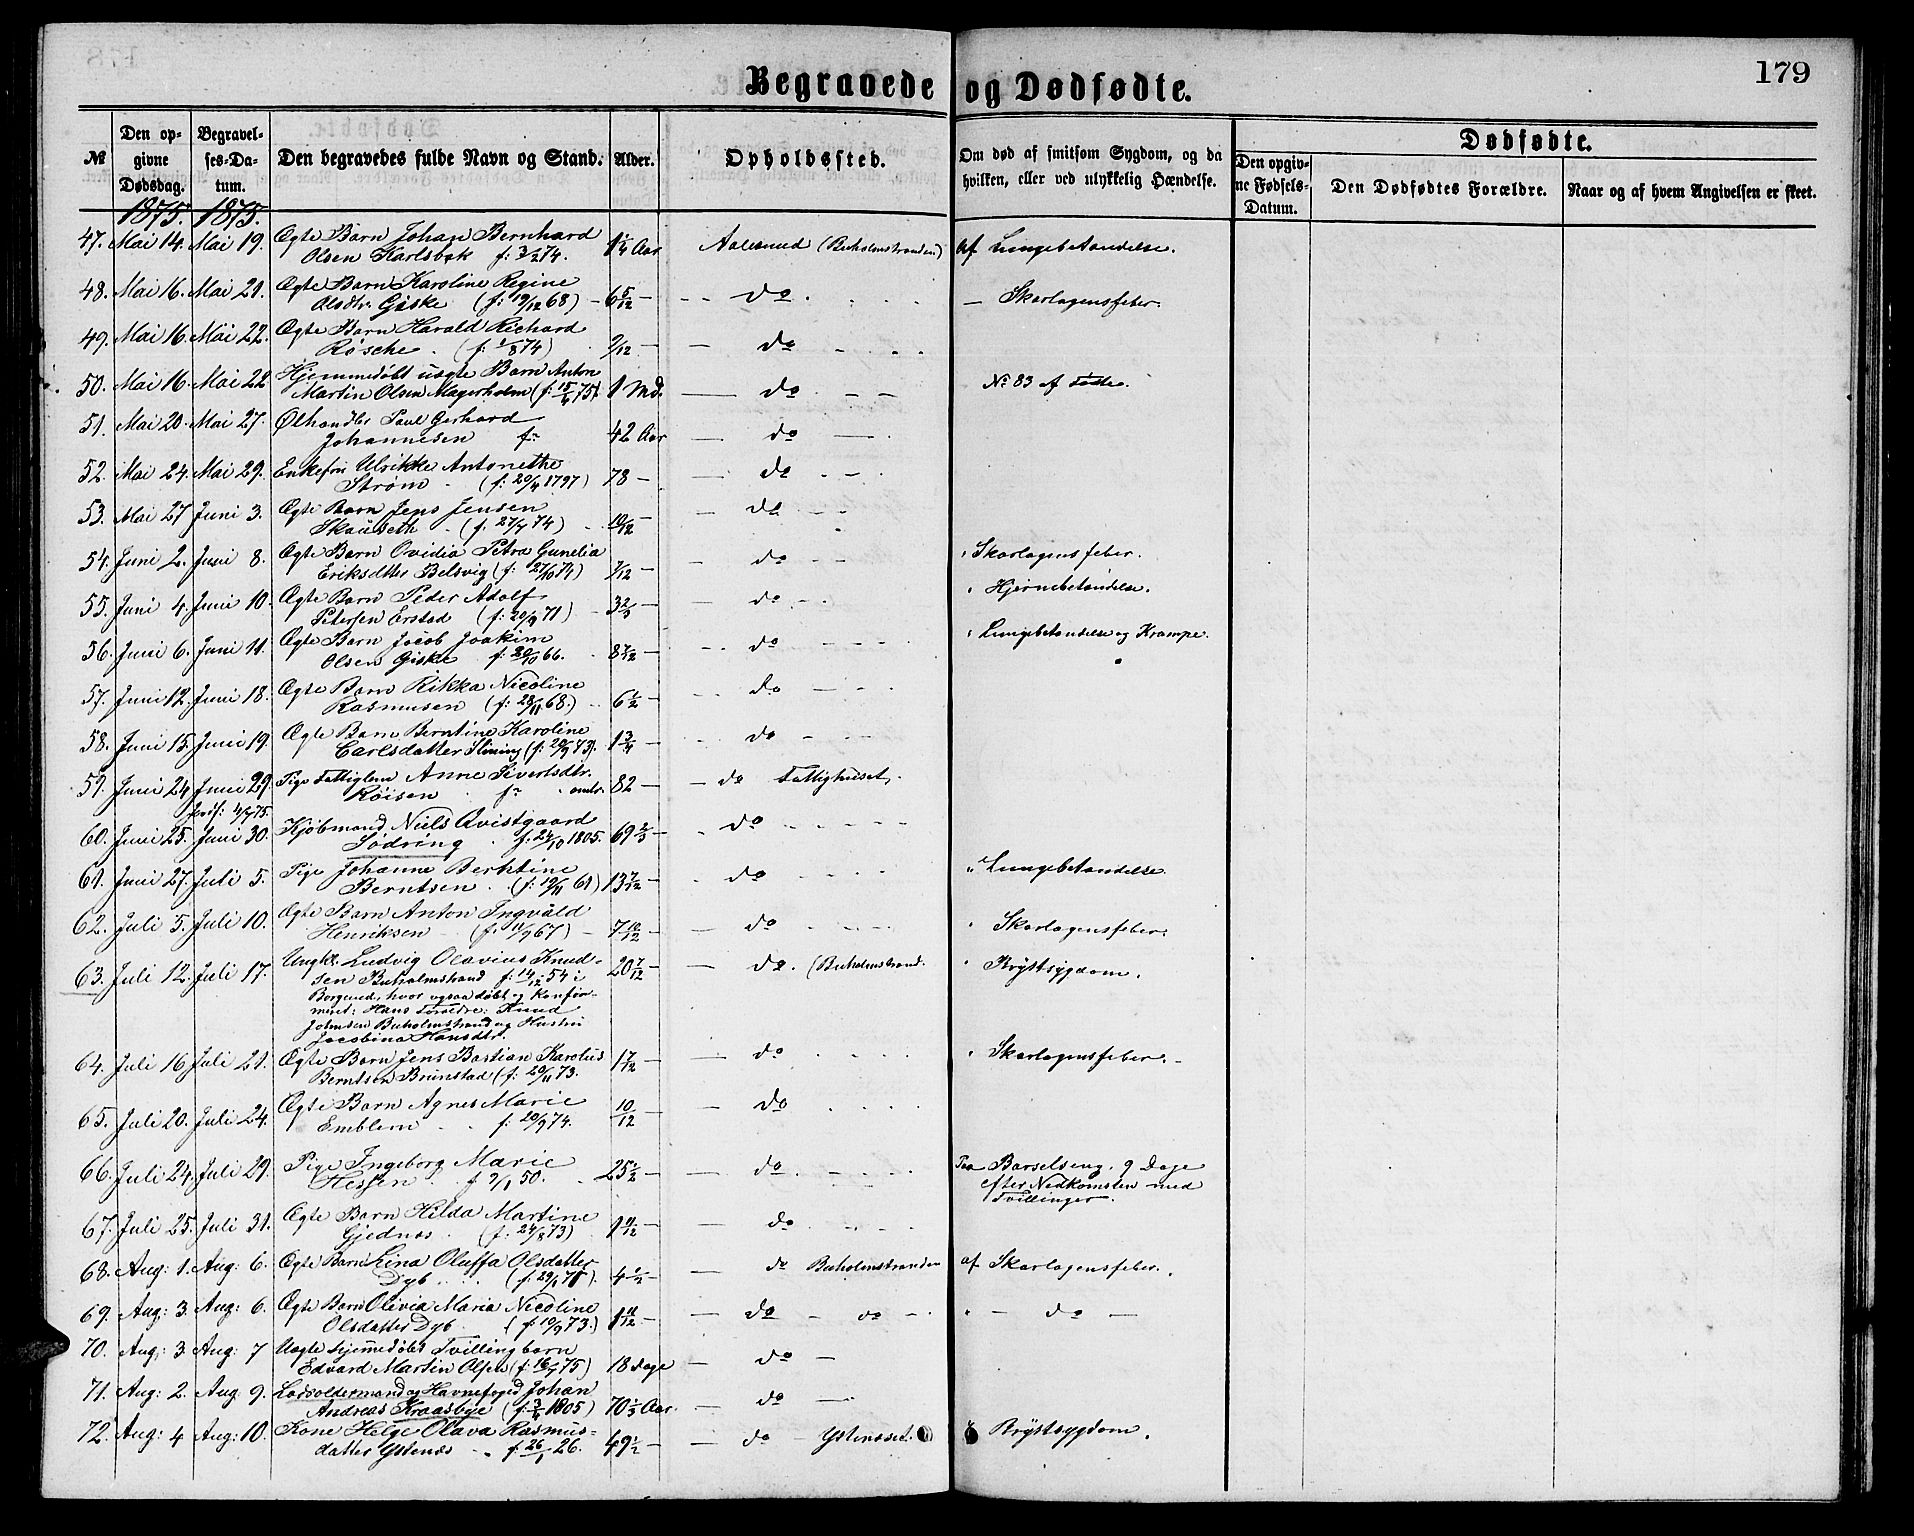 Begravede og Dødfødte.
179
No
Den opgivne Dødsdag.
Begravelses-Datum.
Den begravedes fulde Navn og Stand.
Alder.
Opholdssted.
Om død af smitsom Sygdom, og da hvilken, eller ved ulykkelig Hændelse.
Dødfødte.
Den opgivne Fødsels-Datum.
Den Dødfødtes Forældre.
Naar og af hvem Angivelsen er skeet.
1875. 1875.
47. Mai 14. Mai 19. Ægte Barn Johan Bernhard 1 1/4 Aar Aalesund (Buholmstranden) af Lungebetændelse.
Olsen Karlsbak f: 3/2 74.
48. Mai 16. Mai 21. Ægte Barn Karoline Regine 6 5/12 — do. — Skarlagensfeber.
Olsdtr. Giske (f: 19/12 68)
49. Mai 16. Mai 22. Ægte Barn Harald Richard 9/12 — do
Røsche (f: 1/8 74)
50. Mai 16. Mai 22 Hjemmedøbt uægte Barn Anton 1 Md. — do No 83 af Fødte.
Martin Olsen Magerholm (f: 15/4 75)
51. Mai 20. Mai 27. Ølhandler Paul Gerhard 42 Aar — do —
Johannesen f:
52. Mai 24. Mai 29. Enkefru Ulrikke Antonethe 78 — do
Strøm (f: 20/4 1797)
53. Mai 27 Juni 3. Ægte Barn Jens Jensen 10/12 — do
Skauseth (f. 27/7 74)
54. Juni 2. Juni 8. Ægte Barn Ovidia Petra Gunelia 7/12 — do Skarlagensfeber.
Eriksdatter Belsvig (f: 27/10 74)
55. Juni 4. Juni 10. Ægte Barn Peder Adolf 3 2/3 — do Hjernebetændelse.
Petersen Erstad (f: 20/9 71)
56. Juni 6. Juni 11. Ægte Barn Jacob Joakim 8 7/12 — do Lungebetændelse og Krampe.
Olsen Giske f: 20/10 66.
57. Juni 12. Juni 18. Ægte Barn Rikka Nicoline 6 1/2 — do
Rasmusen (f: 28/11 68.)
58. Juni 15. Juni 19. Ægte Barn Berntine Karoline 1 3/4 — do
Carlsdatter Slining (f: 20/9 73).
59. Juni 24 Juni 29. Pige Fattiglem Anne Sivertsdtr. 82 — do Fattighuset.
Røisen f: omtr.
Jordf: 4/7 75.
60. Juni 25. Juni 30. Kjøbmand Niels Qvistgaard 69 2/3 — do
Tødring f. 24/10 1805.
61. Juni 27. Juli 5. Pige Johanne Berntine 13 7/12 — do Lungebetændelse
Berntsen (f: 19/11 61)
62. Juli 5. Juli 10. Ægte Barn Anton Ingvald 7 10/12 — do Skarlagensfeber.
Henriksen (f: 11/9 67)
63. Juli 12. Juli 17. Ungkl. Ludvig Olavius Knud- 20 7/12 — do. (Buholmstrand. Brystsygdom.
sen Buholmstrand f: 14/12 54 i
Borgund, hvor ogsaa døbt og konfir-
meret: Hans Forældre: Knud
Johnsen Buholmstrand og Hustru
Jacobina Hansdtr.
64. Juli 16 Juli 21. Ægte Barn Jens Bastian Karolus 1 7/12 — do Skarlagensfeber. -
Berntsen Brunstad (f: 20/11 73.
65. Juli 20. Juli 24. Ægte Barn Agnes Marie 10/12 — do
Emblem f: 20/9 74.
66. Juli 24. Juli 29. Pige Ingeborg Marie 25 1/2 — do. Paa Barselseng. 9 Dage
Hessen f 9/1 50. efter Nedkomsten med
Tvillinger.
67. Juli 25. Juli 31. Ægte Barn Hilda Martine 1 11/12 — do
Gjednæs (f: 24/8 73)
68. Aug: 1. Aug: 6. Ægte Barn Lina Oluffa Olsdatter 4 1/2 — do Buholmstranden af Skarlagensfeber.
Dyb (f: 29/1 71).
69. Aug: 3. Aug: 6. Ægte Barn Olivia Maria Nicoline 1 11/12 — do — do — — do —
Olsdatter Dyb (f: 10/9 73.)
70. Aug: 3. Aug: 7 Uægte hjemmedøbt Tvillingbarn
Edvard Martin Olsen (f: 16/7 75) 18 Dage — do —
71. Aug: 2. Aug: 9. Lodsoldermand og Havnefoged Johan
Andreas Kraasbye (f: 3/4 1805) 70 1/3 Aar. — do —
72. Aug: 4 Aug: 10. Kone Helge Olava Rasmus- 49 1/2 — do — Ystenæset. Brystsygdom.
datter Ystenæs f: 26/1 26.